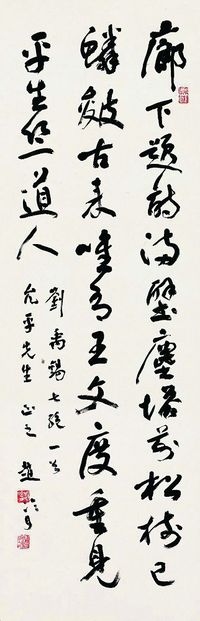 廊下題詩滿壁塵塔前松樹已
鱗皴古来唯有王文度重見
平生竺道人
劉禹錫七絕一首
允平先生正之 趙冷月